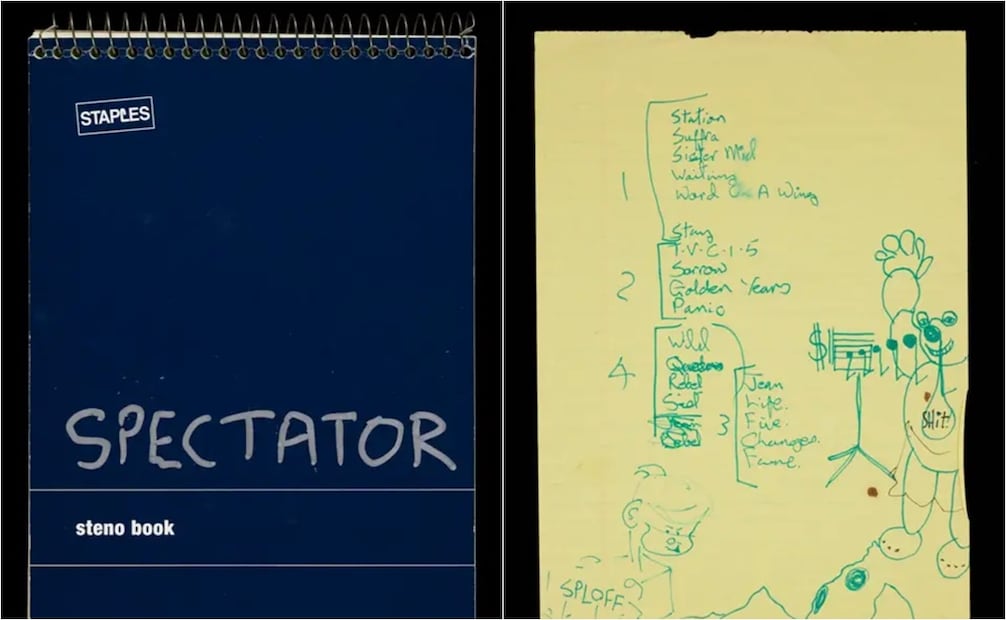 STAPLES
SPECTATOR
steno book
1
Station
Suffra
Sister Mid
Waiting
Word On A Wing
Stay
2
T.V.C.1.5
Sorrow
Golden Years
Panic
4
Wild
Question
Rebel
Sist
3
Jean
Life.
Five.
Changes.
Fame.
$
SHit!
SPLOFF